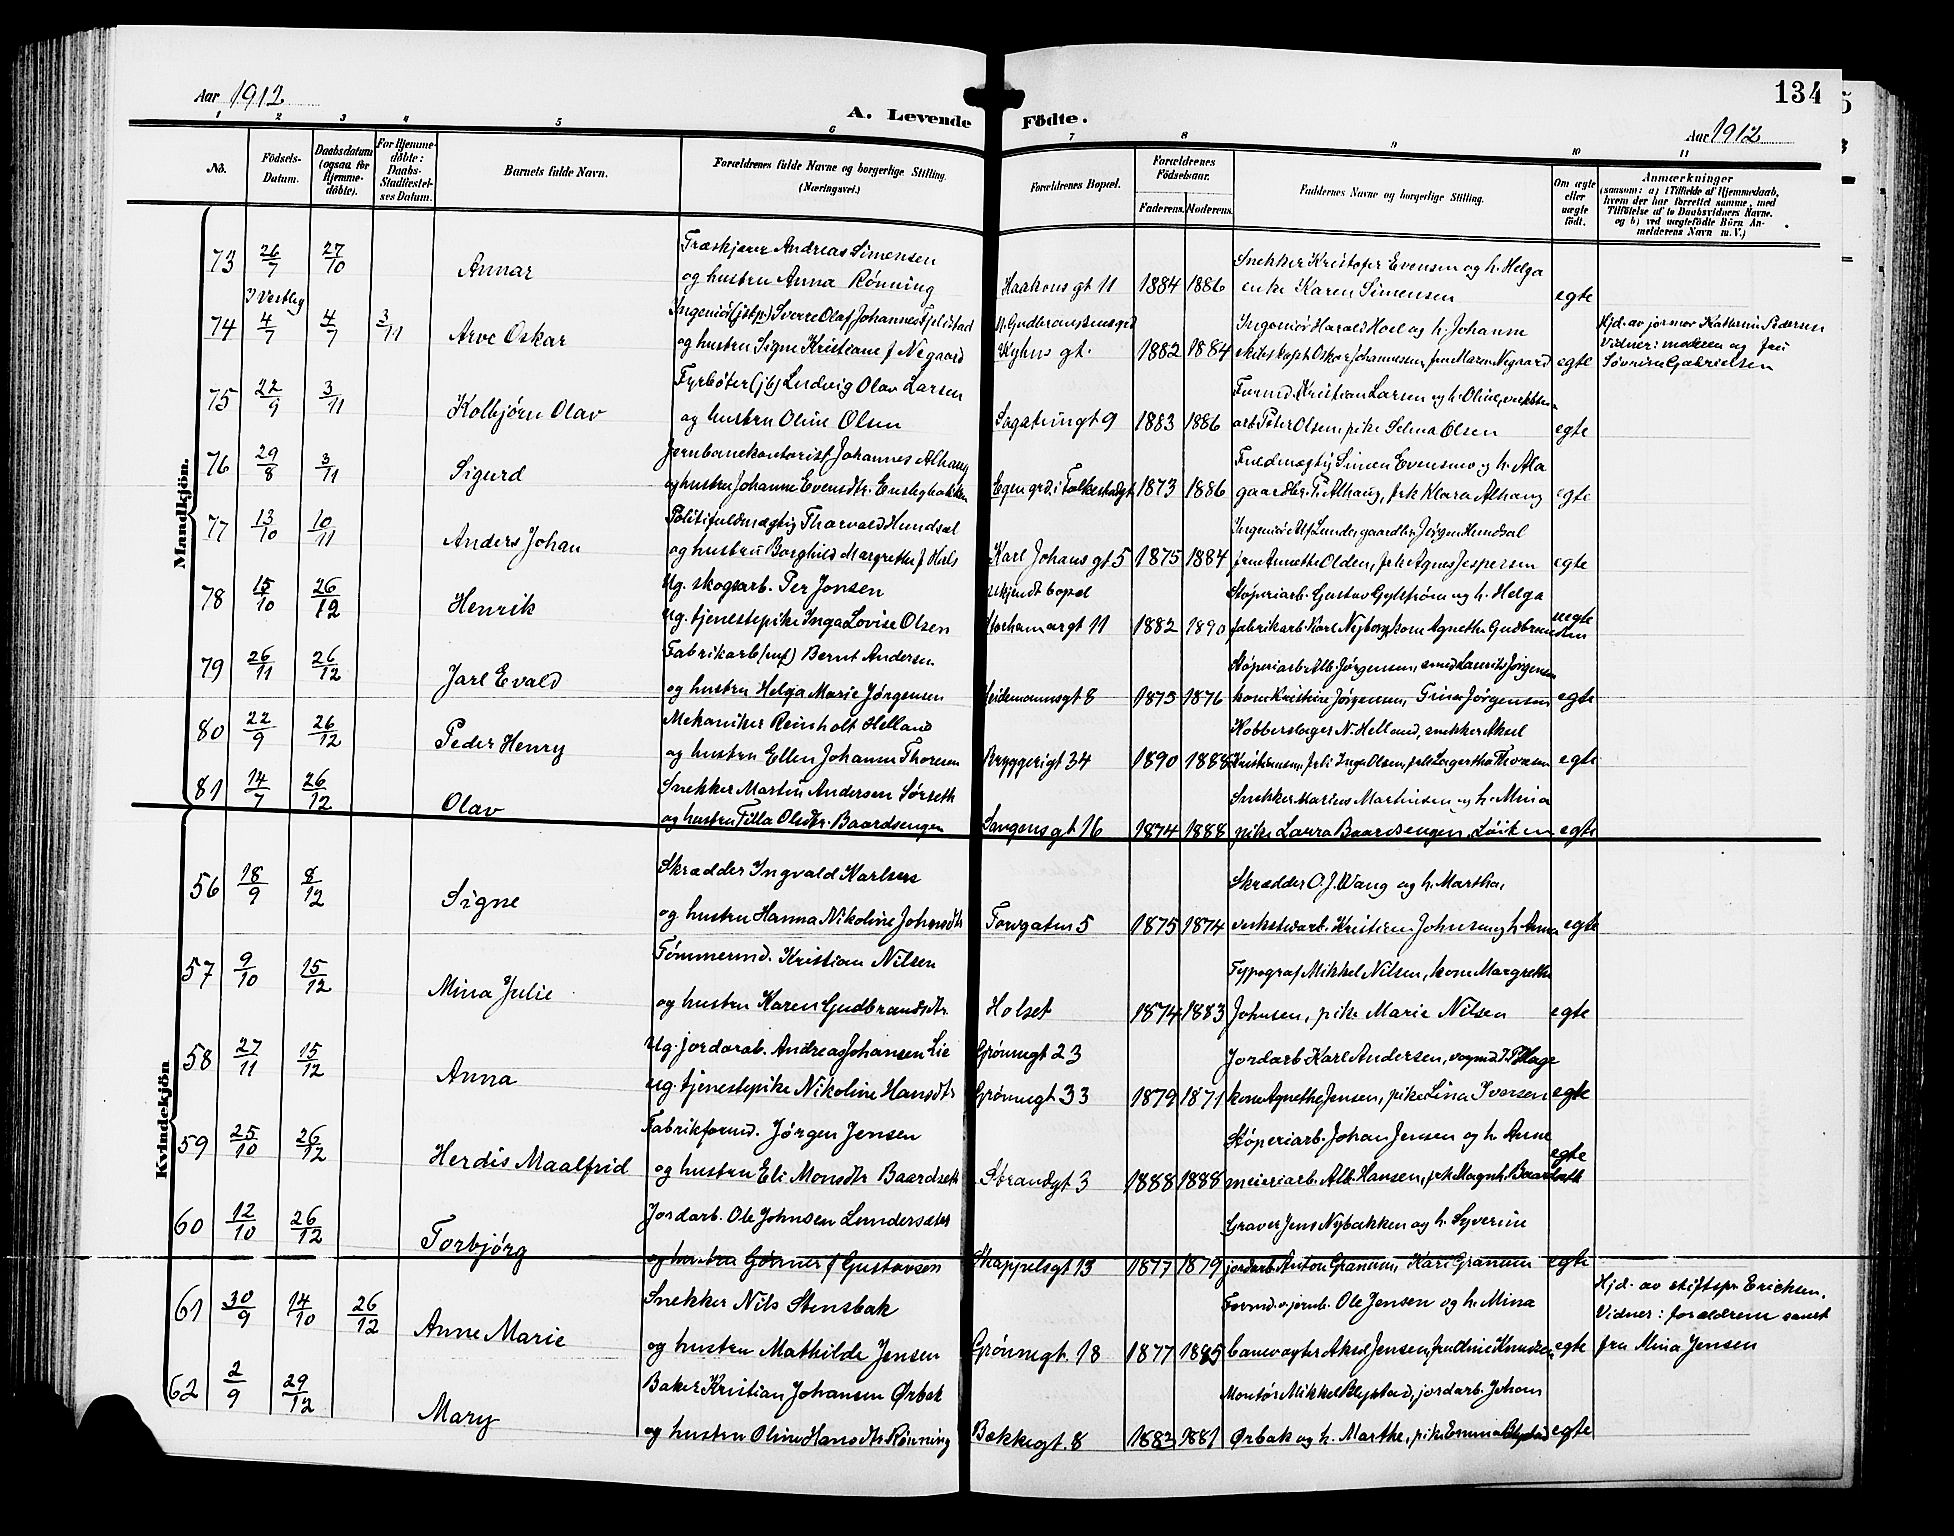 134
Aar 1912
A. Levende Födte.
Aar 1912
1 2 3 4 5 6 7 8 9 10 11
No.
Födsels-Datum.
Daabsdatum (ogsaa for Hjemmedöbte).
For Hjemmedöbte: Daabs-Stadfæstelses Datum.
Barnets fulde Navn.
Forældrenes fulde Navne og borgerlige Stilling. (Næringsvei.)
Forældrenes Bopæl.
Forældrenes Födselsaar.
Faderens. Moderens.
Faddernes Navne og borgerlige Stilling.
Om ægte eller uægte födt.
Anmærkninger
(saasom: a) i Tilfælde af Hjemmedaab, hvem der har forrettet samme, med Tilföielse af to Daabsvidners Navne. og b) ved uægtefödte Börn Anmelderens Navn m. V.)
Mandkjön.
73 26/7 27/10 Annar
Træskjærer Andreas Simensen
og hustru Anna Rønning
Haakons gt 11 1884 1886
Snekker Kristofer Evensen og h. Helga
enke Karen Simensen egte
74 4/7 4/7 3/11 Arve Oskar
Sverre Olaf Johannes Fjeldstad
og hustru Signe Kristiane f Negaard
gt. 1882 1884
Ingeniør Harald Hoel og h. Johanne
Oskar Johannessen, fru Maren Negaard egte
Hjd. av jormor Kathrine Pedersen
Vidner: moderen og fru
Søvrine Gabrielsen
75 22/9 3/11 Kolbjørn Olav
Fyrbøter (jb) Ludvig Olav Larsen
og hustru Oline Olsen
Sagatungt 9 1883 1886
Formd. Kristian Larsen og h. Oline, verksten
arb. Peter Olsen, pike Selma Olsen egte
76 29/8 3/11 Sigurd
Jernbanekontorist Johannes Alhaug
og hustru Johanne Evensdtr.
Egen grd. i Folkestadgt 1873 1886
Fuldmægtig Simen Evensmo og h. Ala
gaardbr. P. Alhaug, frk Klara Alhaug egte
77 13/10 10/11 Anders Johan
Politifuldmægtig Thorvald Hundsal
og hustru Borghild Margrethe f Hals
Karl Johans gt 5 1875 1884
Ingeniør Alf Lunde, gaardbr. Jørgen Hundsal
frue Annette Olden, frk Agnes Jespersen egte
78 15/10 26/12 Henrik
Ug. skogsarb. Per Jonsen
ug. tjenestepike Inga Lovise Olsen
ukjendt bopel
Storhamargt 11 1882 1890
Støperiarb. Gustav Gylstrøm og h. Helga
fabrikarb Karl Nyborg, kone Agnethe Gudbrandsen uegte
79 26/11 26/12 Jarl Evald
Fabrikarb (mf) Bernt Andersen
og hustru Helga Marie Jørgensen
Heidemannsgt 8 1875 1876
Støperiarb. Alb. Jørgensen, smed Laurits Jørgensen
kone Kristine Jørgensen, Trina Jørgensen egte
80 22/9 26/12 Peder Henry
Mekaniker Reinholt Helland
og hustru Ellen Johanne Thoresen
Bryggerigt 34 1890 1888
Kobberslager N. Helland, snekker Aksel
Kristiansen, frk. Inga Olsen, frk Lagertha Thoresen egte
81 14/7 26/12 Olav
Snekker Martin Andersen Sørseth
og hustru Tilla Olsdtr. Baardsengen
Langens gt 16 1874 1888
Snekker Marius Martinsen og h. Mina
pike Laura Baardsengen, Løiten egte
Kvindekjön
56 18/9 8/12 Signe
Skrædder Ingvald Karlsen
og hustru Hanna Nikoline Johnsdtr
Torvgaten 5 1875 1874
Skrædder O. J. Wang og h. Martha,
verkstedarb. Kristian Johnsen og h. Anna egte
57 9/10 15/12 Mina Julie
Tømmermd. Kristian Nilsen
og hustru Karen Gudbrandsdtr.
Holset 1874 1883
Typograf Mikkel Nilsen, kone Margrethe
Johnsen, pike Marie Nilsen egte
58 27/11 15/12 Anna
Ug. jordarb. Andreas Johansen Lie
ug. tjenestepike Nikoline Hansdtr
Grønnegt 23
Grønnegt 33 1879 1871
Jordarb Karl Andersen, vognmd. P. Hage
kone Agnethe Jensen, pike Lina Iversen egte
59 25/10 26/12 Herdis Maalfrid
Fabrikformd. Jørgen Jensen
og hustru Eli Monsdtr Baardseth
Strandgt 3 1888 1888
Støperiarb. Johan Jensen og h. Anne
meieriarb. Alb. Hansen, frk Magnh. Baardseth egte
60 12/10 26/12 Torbjørg
Jordarb. Ole Johnsen Lundersæter
og hustru Gunner f Gustavsen
Skappelsgt 13 1877 1879
Graver Jens Nybakken og h. Syverine
jordarb. Anton Granum, Kari Granum egte
61 30/9 14/10 26/12 Anne Marie
Snekker Nils Stensbak
og hustru Mathilde Jensen
Grønnegt. 18 1877 1885
Formd. v. jernb. Ole Jensen og h. Mina
banevogter Aksel Jensen, fru Oline Knudsen egte
Hjd. av stiftspr. Ericksen.
Vidner: forældrene samt
fru Mina Jensen
62 2/9 29/12 Mary
Baker Kristian Johansen Ørbak
og hustru Oline Hansdtr Rønning
Bækkegt. 8 1882 1881
Montør Mikkel Blystad, jordarb. Johan
Ørbak og h. Marthe, pike Emma Blystad egte